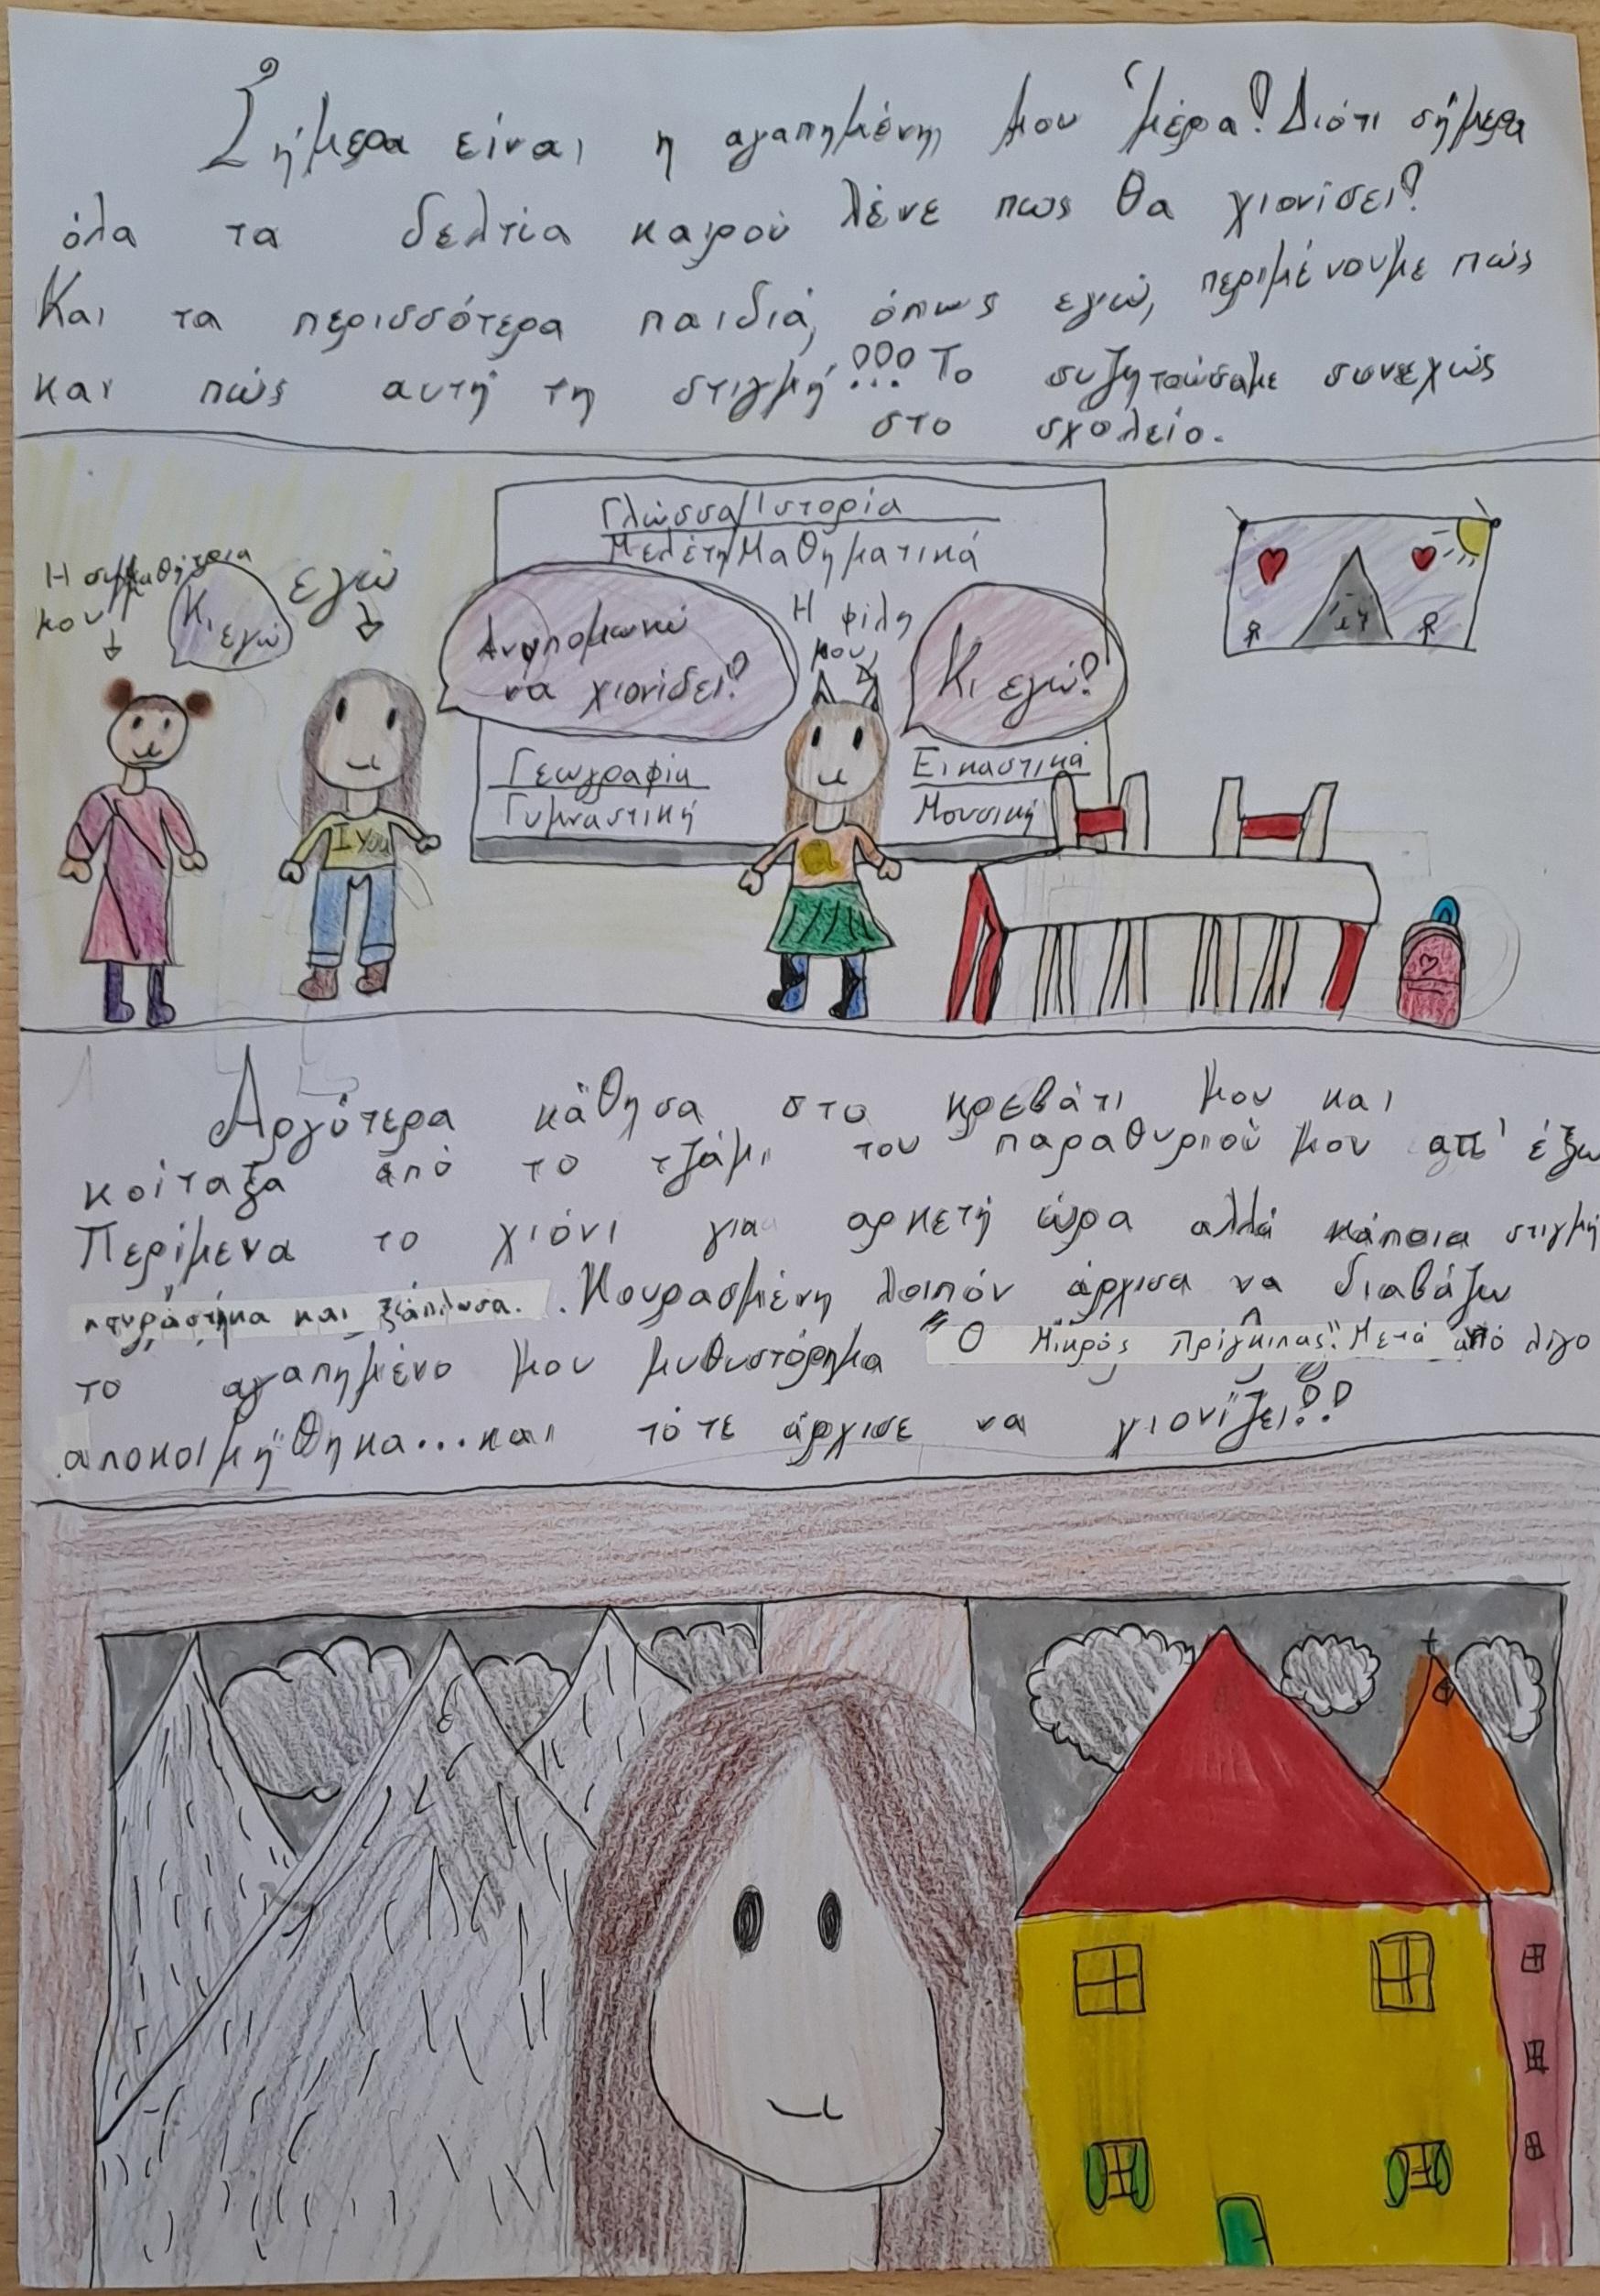 Σήμερα είναι η αγαπημένη μου μέρα! Διότι σήμερα
όλα τα δελτία καιρού λένε πως θα χιονίσει!
Και τα περισσότερα παιδιά, όπως εγώ, περιμένουμε πώς
και πώς αυτή τη στιγμή!!! Το συζητούσαμε συνεχώς
στο σχολείο.
Γλώσσα/Ιστορία
Μελέτη/Μαθηματικά
Η συμμαθήτρια
μου
Κι
εγώ
εγώ
Ανυπομονώ
να χιονίσει!
Η φίλη
μου
Κι εγώ!
Γεωγραφία
Γυμναστική
Εικαστικά
Μουσική
I You
Αργότερα κάθησα στο κρεβάτι μου και
κοίταξα από το τζάμι του παραθυριού μου απ' έξω
Περίμενα το χιόνι για αρκετή ώρα αλλά κάποια στιγμή
κουράστηκα και ξάπλωσα. Κουρασμένη λοιπόν άρχισα να διαβάζω
το αγαπημένο μου μυθιστόρημα "Ο Μικρός Πρίγκιπας". Μετά από λίγο
αποκοιμήθηκα...και τότε άρχισε να χιονίζει!!